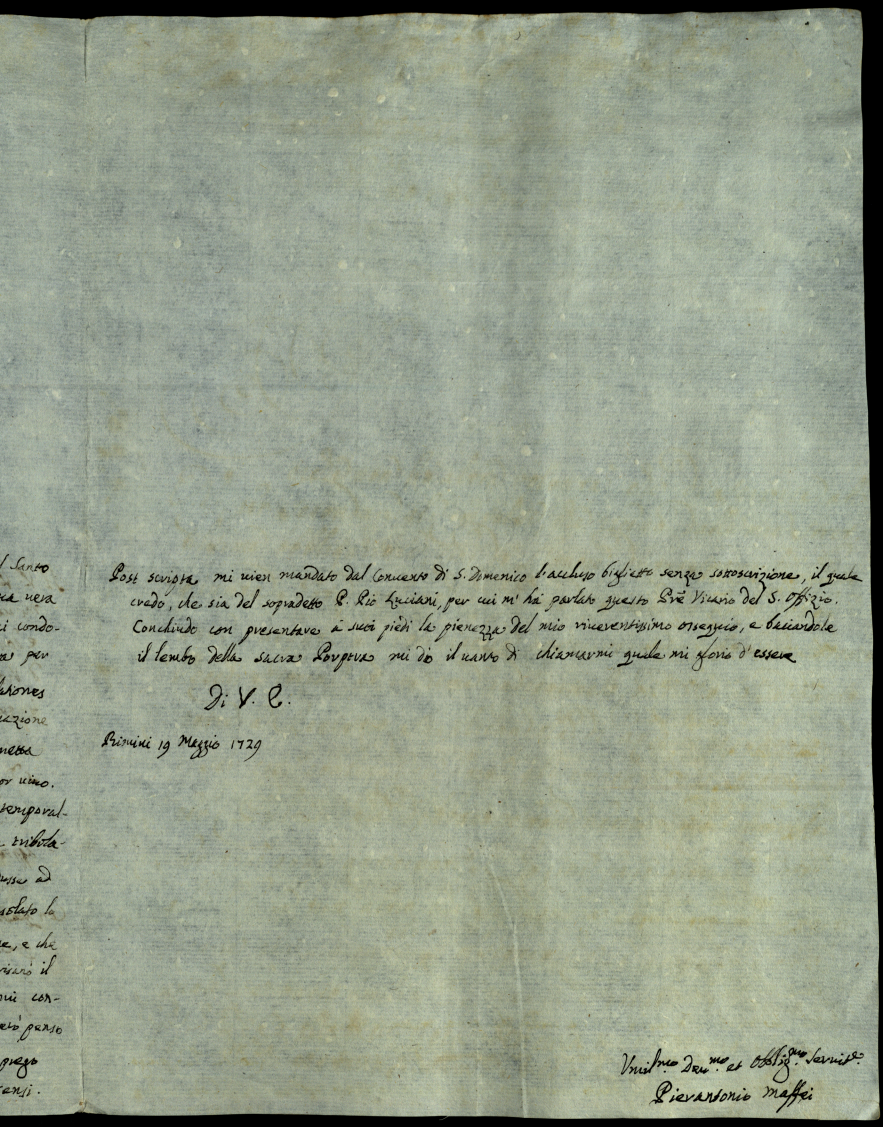 l Santo
vera
i condo-
per
lationes
azione
metta
or vivo.
temporal-
tribola-
ad
solato lo
e, e che
il
con-
penso
prego
ensi.
Post scripta mi vien mandato dal Convento di S. Domenico l'accluso biglietto senza sottoscrizione, il quale
credo, che sia del sopradetto P. Pio Luciani, per cui m'ha parlato questo Prē Vicario del S. Offizio.
Conchiudo con presentare a suoi piedi la pienezza del mio riverentissimo ossequio, e baciandole
il lembo della sacra Porpora mi do il vanto di chiamarmi quale mi glorio d'essere
Di V. E.
Rimini 19 Maggio 1729
Vmilmo Devmo et Obbligmo Servite
Pierantonio Maffei